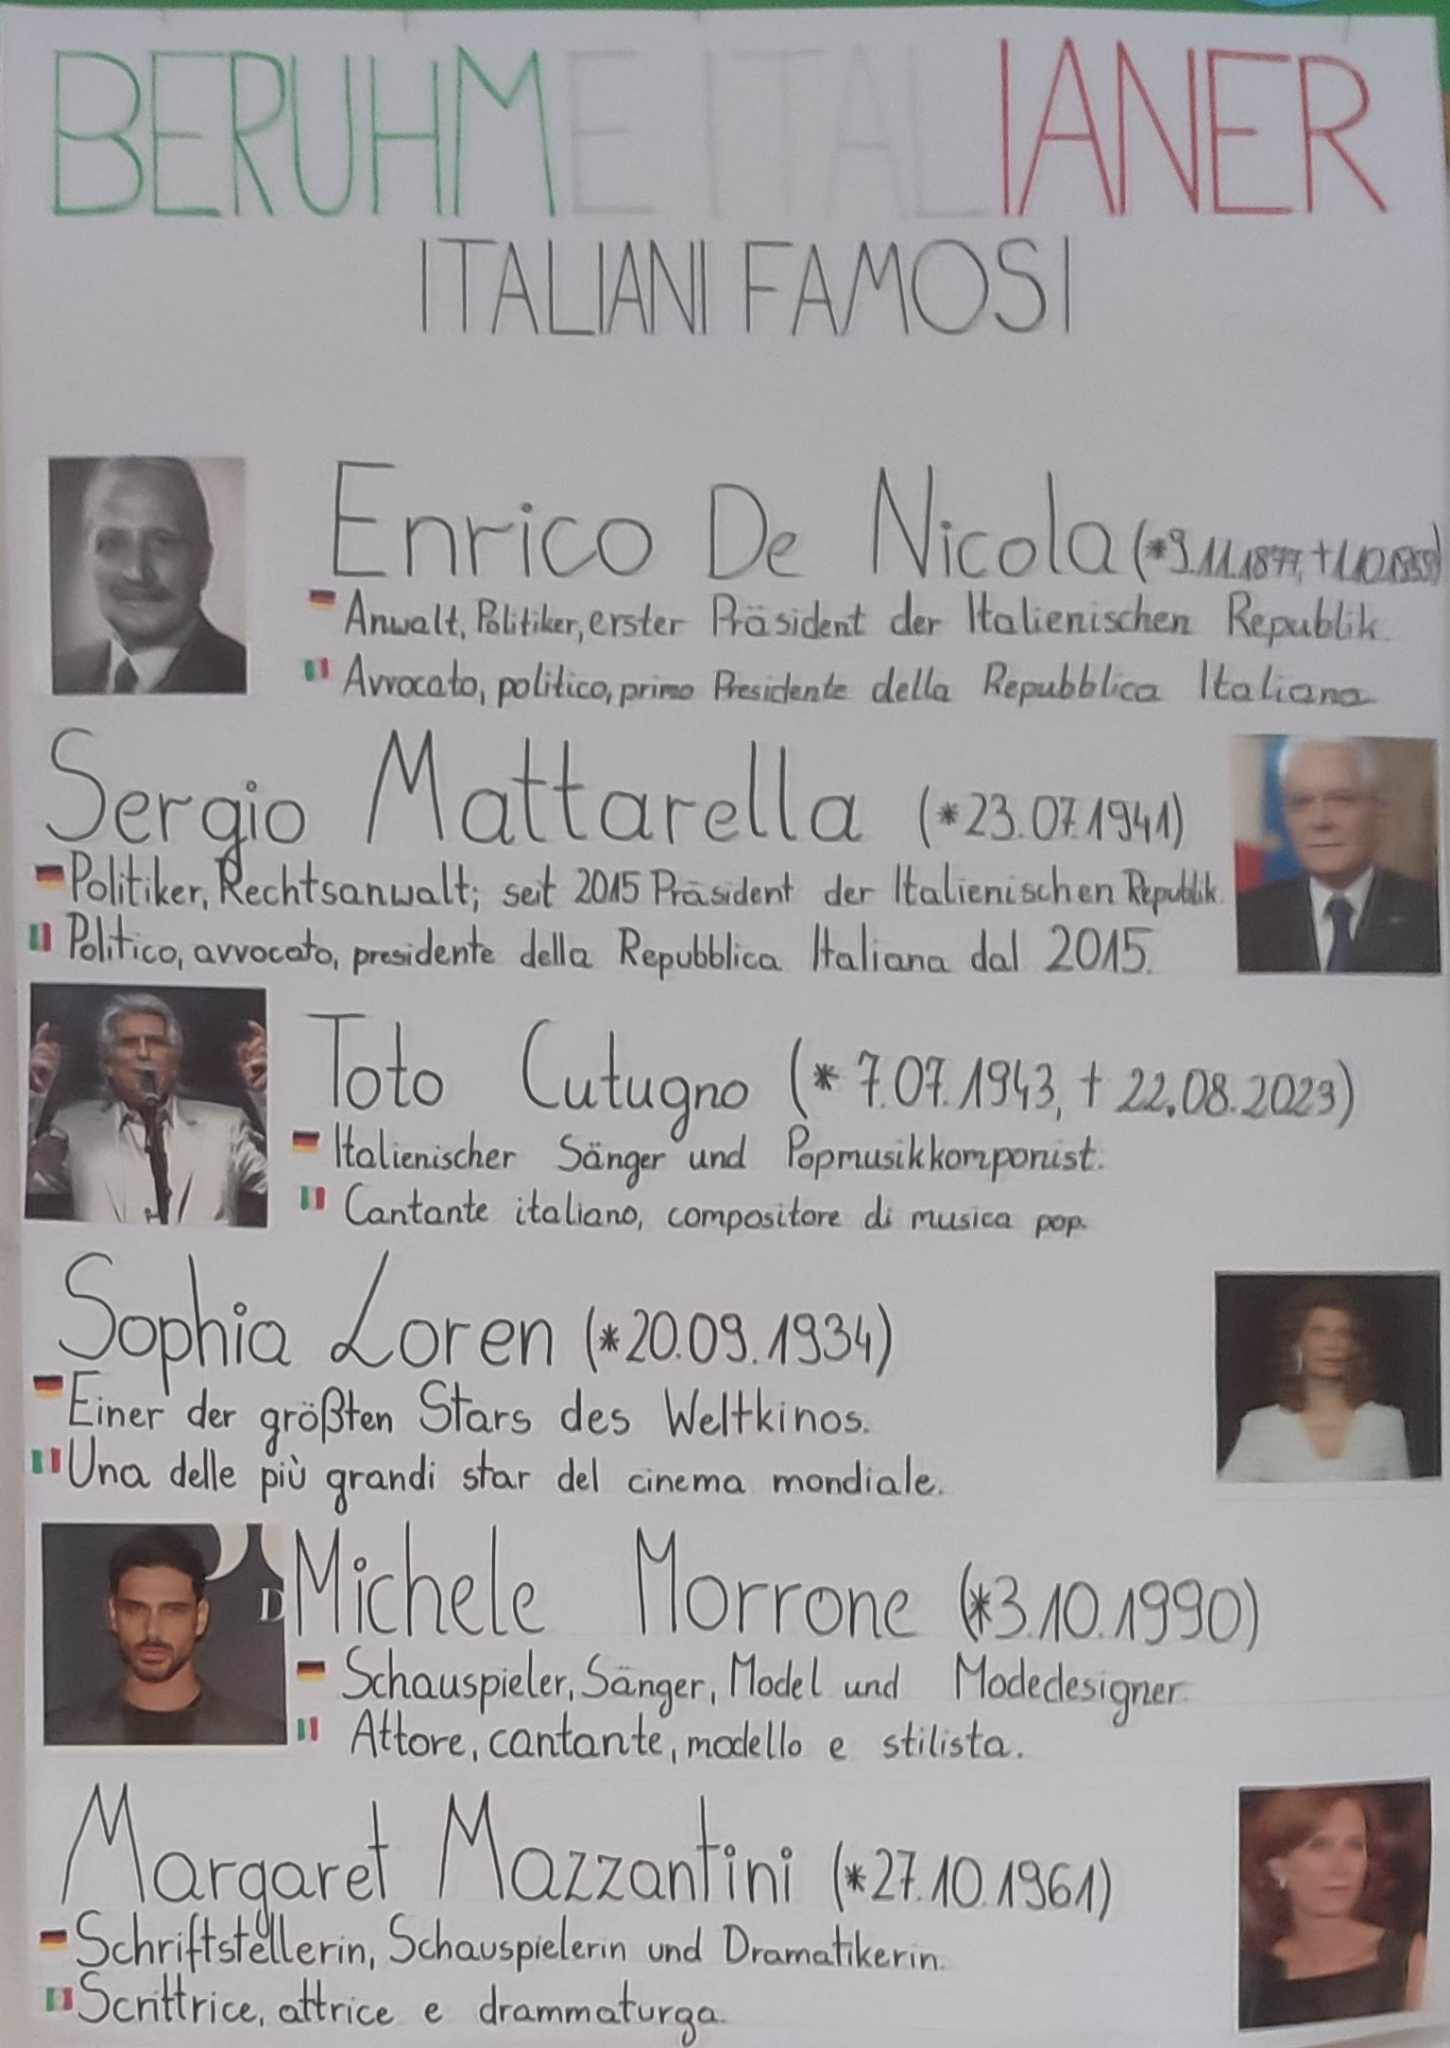 BERUHME ITALIANER
ITALIANI FAMOSI
Enrico De Nicola (*9.11.1877, +1.10.1959)
Anwalt, Politiker, erster Präsident der Italienischen Republik.
Avvocato, politico, primo Presidente della Repubblica Italiana
Sergio Mattarella (*23.07.1941)
Politiker, Rechtsanwalt; seit 2015 Präsident der Italienischen Republik.
Politico, avvocato, presidente della Repubblica Italiana dal 2015.
Toto Cutugno (* 7.07.1943, + 22.08.2023)
Italienischer Sänger und Popmusikkomponist.
Cantante italiano, compositore di musica pop.
Sophia Loren (*20.09.1934)
Einer der größten Stars des Weltkinos.
Una delle più grandi star del cinema mondiale.
D
Michele Morrone (*3.10.1990)
Schauspieler, Sänger, Model und Modedesigner.
Attore, cantante, modello e stilista.
Margaret Mazzantini (*27.10.1961)
Schriftstellerin, Schauspielerin und Dramatikerin.
Scrittrice, attrice e drammaturga.